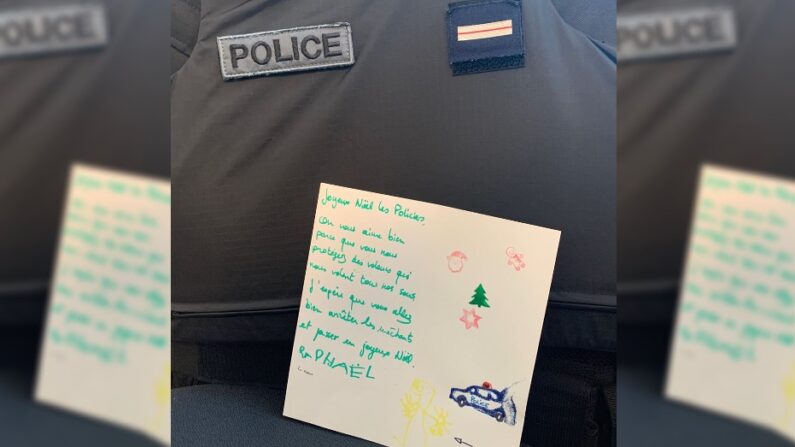 POLICE
Joyeux Noël les Policiers.
On vous aime bien
parce que vous nous
protegez des voleurs qui
nous volent tous nos sous
J'espère que vous allez
bien arrêter les méchants
et passer un joyeux Noël.
RaPHAËL
POLICE